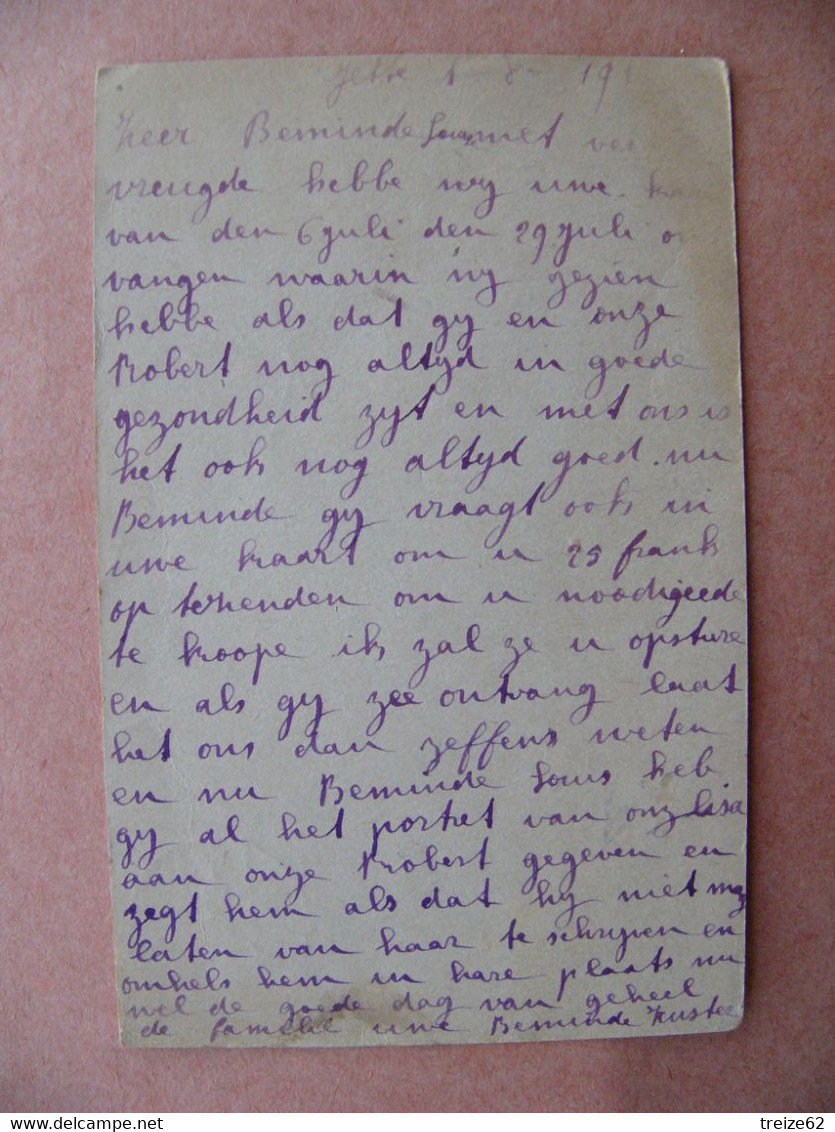 Jette 1 - 8 - 19
Zeer Beminde Louis met vee
vreugde hebbe wy uwe
van den 6 juli den 29 juli
vangen waarin wy gezien
hebbe als dat gy en onze
Robert nog altyd in goede
gezondheid zyt en met ons is
het ook nog altyd goed. nu
Beminde gy vraagt ook in
uwe kaart om u 25 frank
op te zenden om u noodigeede
te koope ik zal ze u opsture
en als gy zee ontvang laat
het ons dan zeffens weten
en nu Beminde Louis heb
gy al het portret van onz Lisa
aan onze Robert gegeven en
zegt hem als dat hy niet mag
laten van haar te schryven en
omhels hem in hare plaats nu
wel de goede dag van geheel
de familie uwe Beminde Zuster
www.delcampe.net
treize62